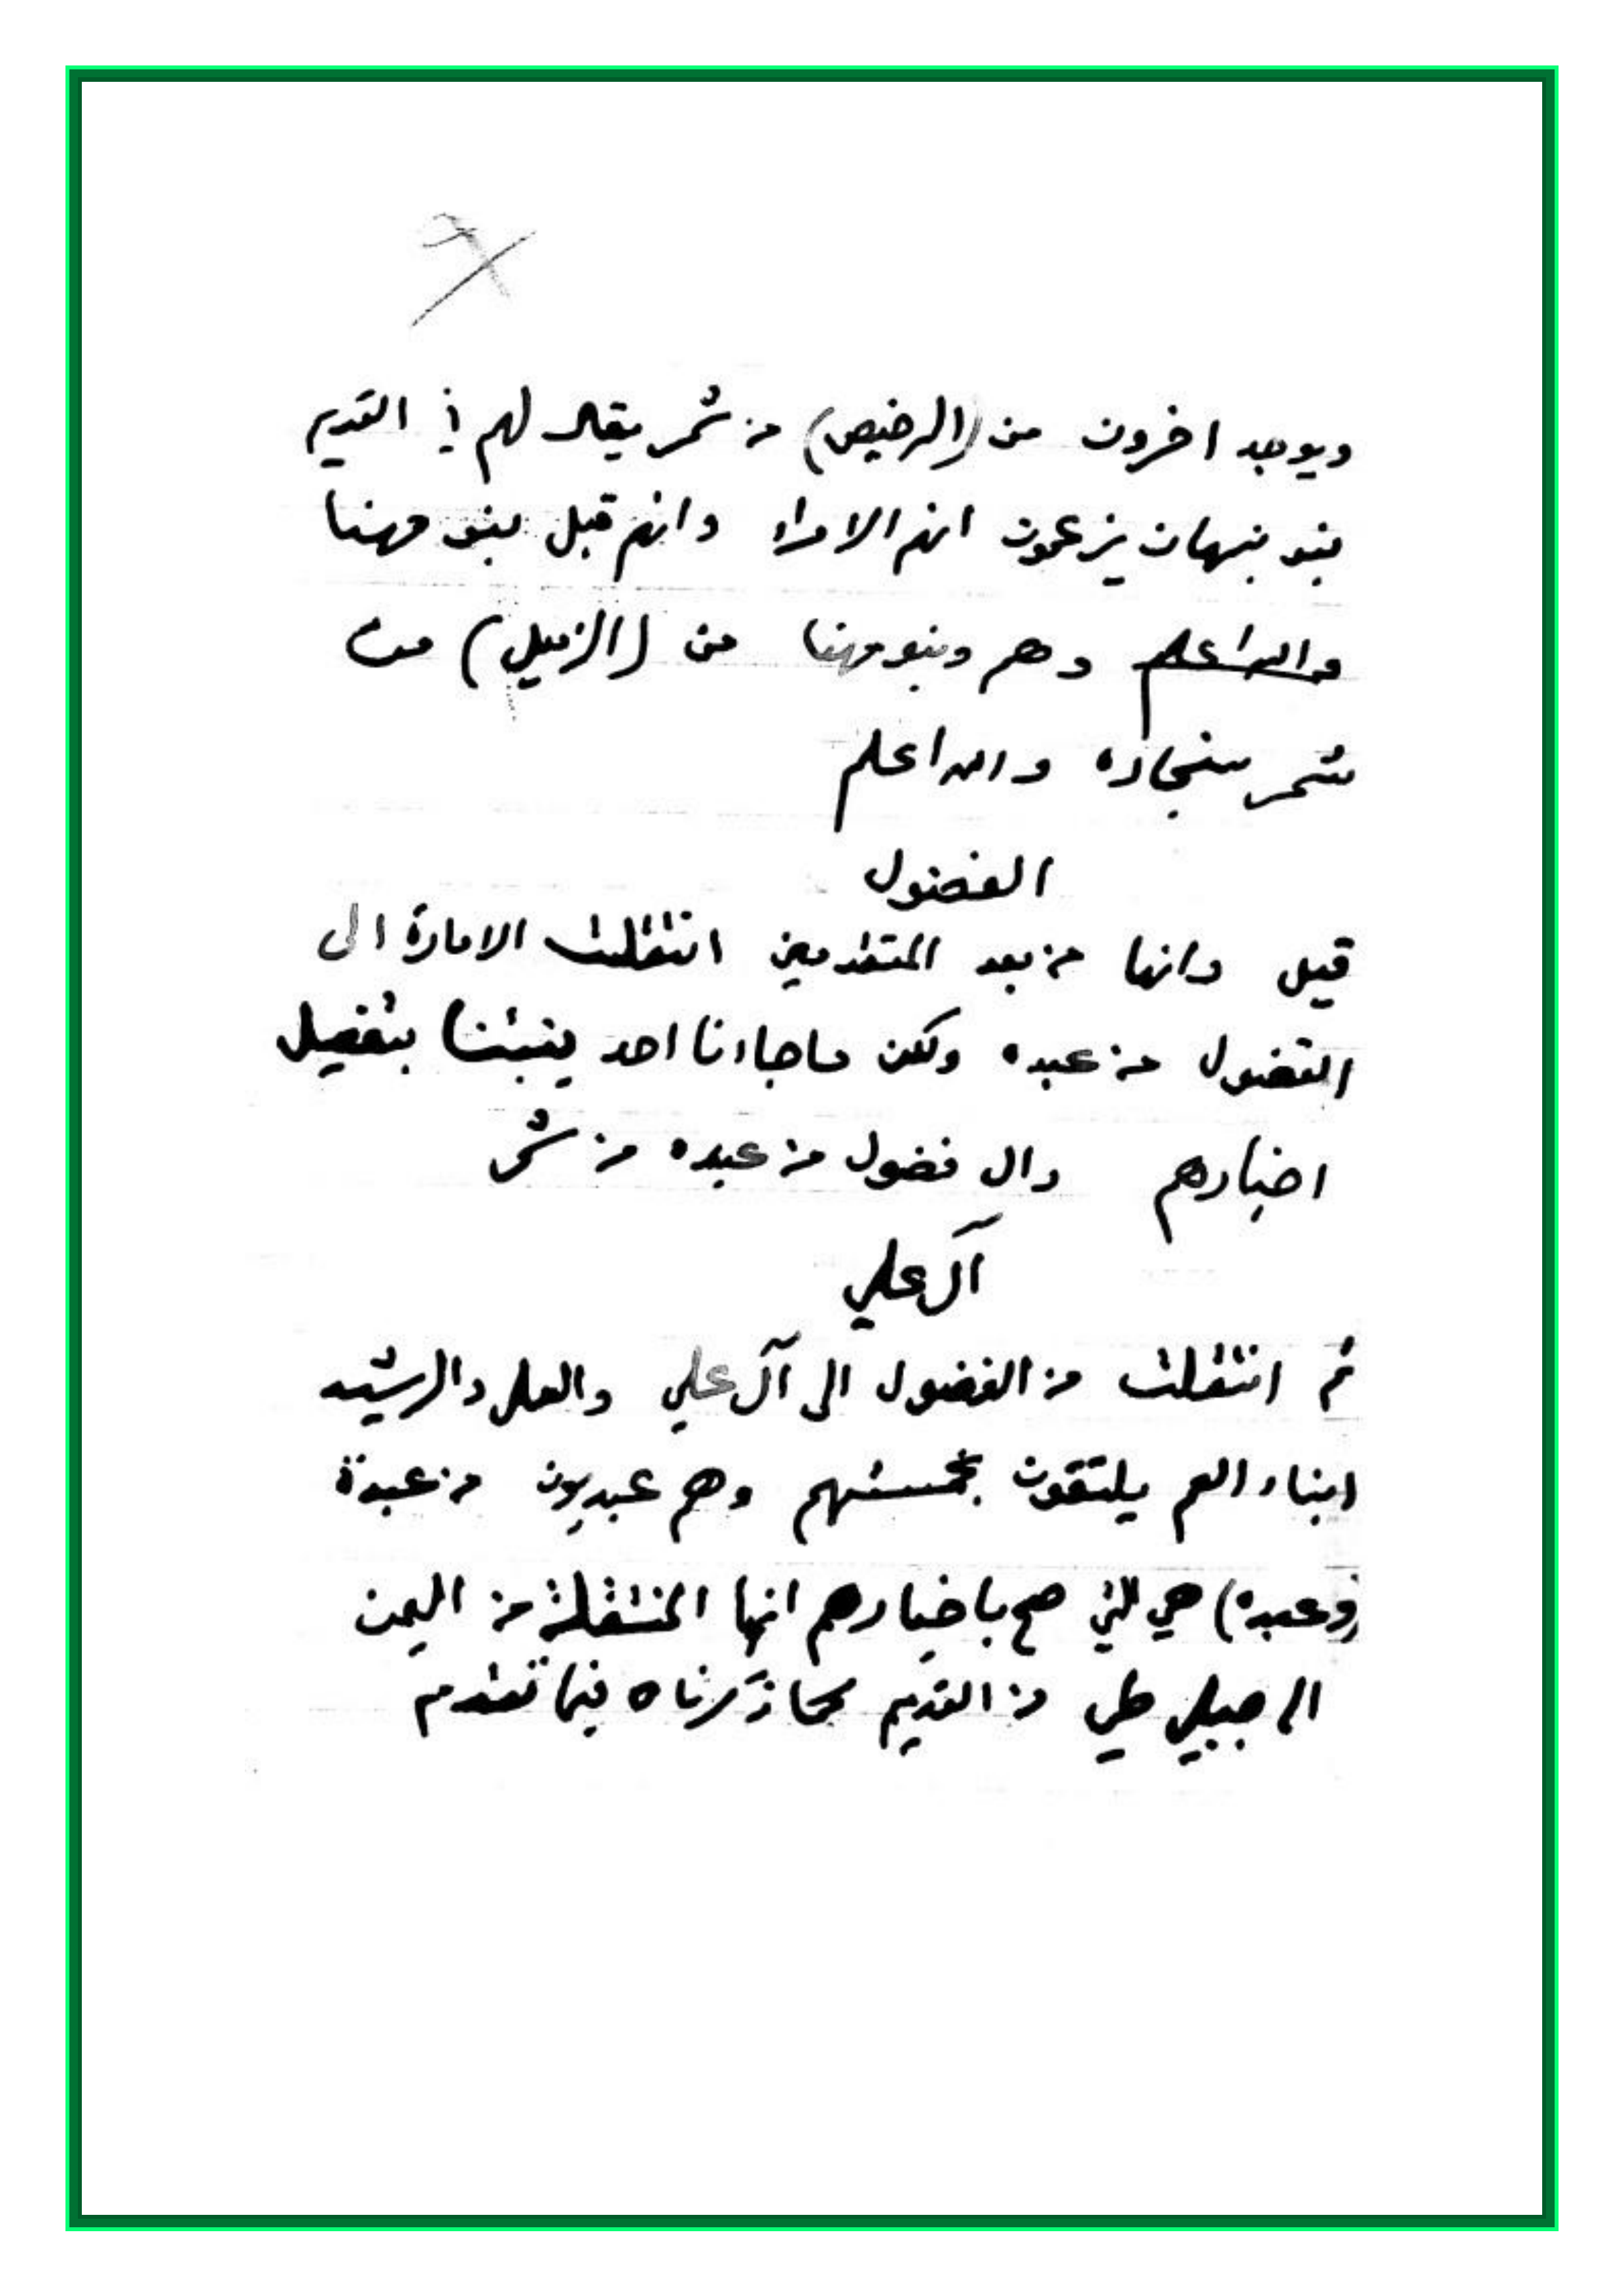 ويوجد اخرون من (الرخيص) من شمر يقال لهم في القديم
بنو نبهان يزعمون انهم الامراء وانهم قبل بنو مهنا
والله اعلم وهم وبنو مهنا من (الزميل) من
شمر سنجاره والله اعلم
الفضول
قيل وانها من بعد المتقدمين انتقلت الامارة الى
الفضول من عبده ولكن ماجاءنا احد ينبئنا بتفصيل
اخبارهم وال فضول من عبده من شمر
آل علي
ثم انتقلت من الفضول الى آل علي والعلي والرشيد
ابناء العم يلتقون وهم عبديون من عبدة
(وعبده) هي التي صح باخبارهم انها المنتقلة من اليمن
الى جبلي طي من القديم كما ذكرناه فيما تقدم